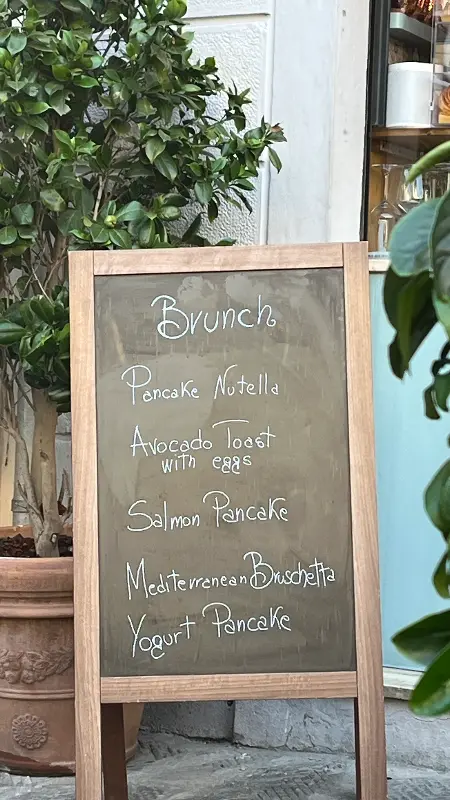 Brunch
Pancake Nutella
Avocado Toast
with eggs
Salmon Pancake
Mediterranean Bruschetta
Yogurt Pancake